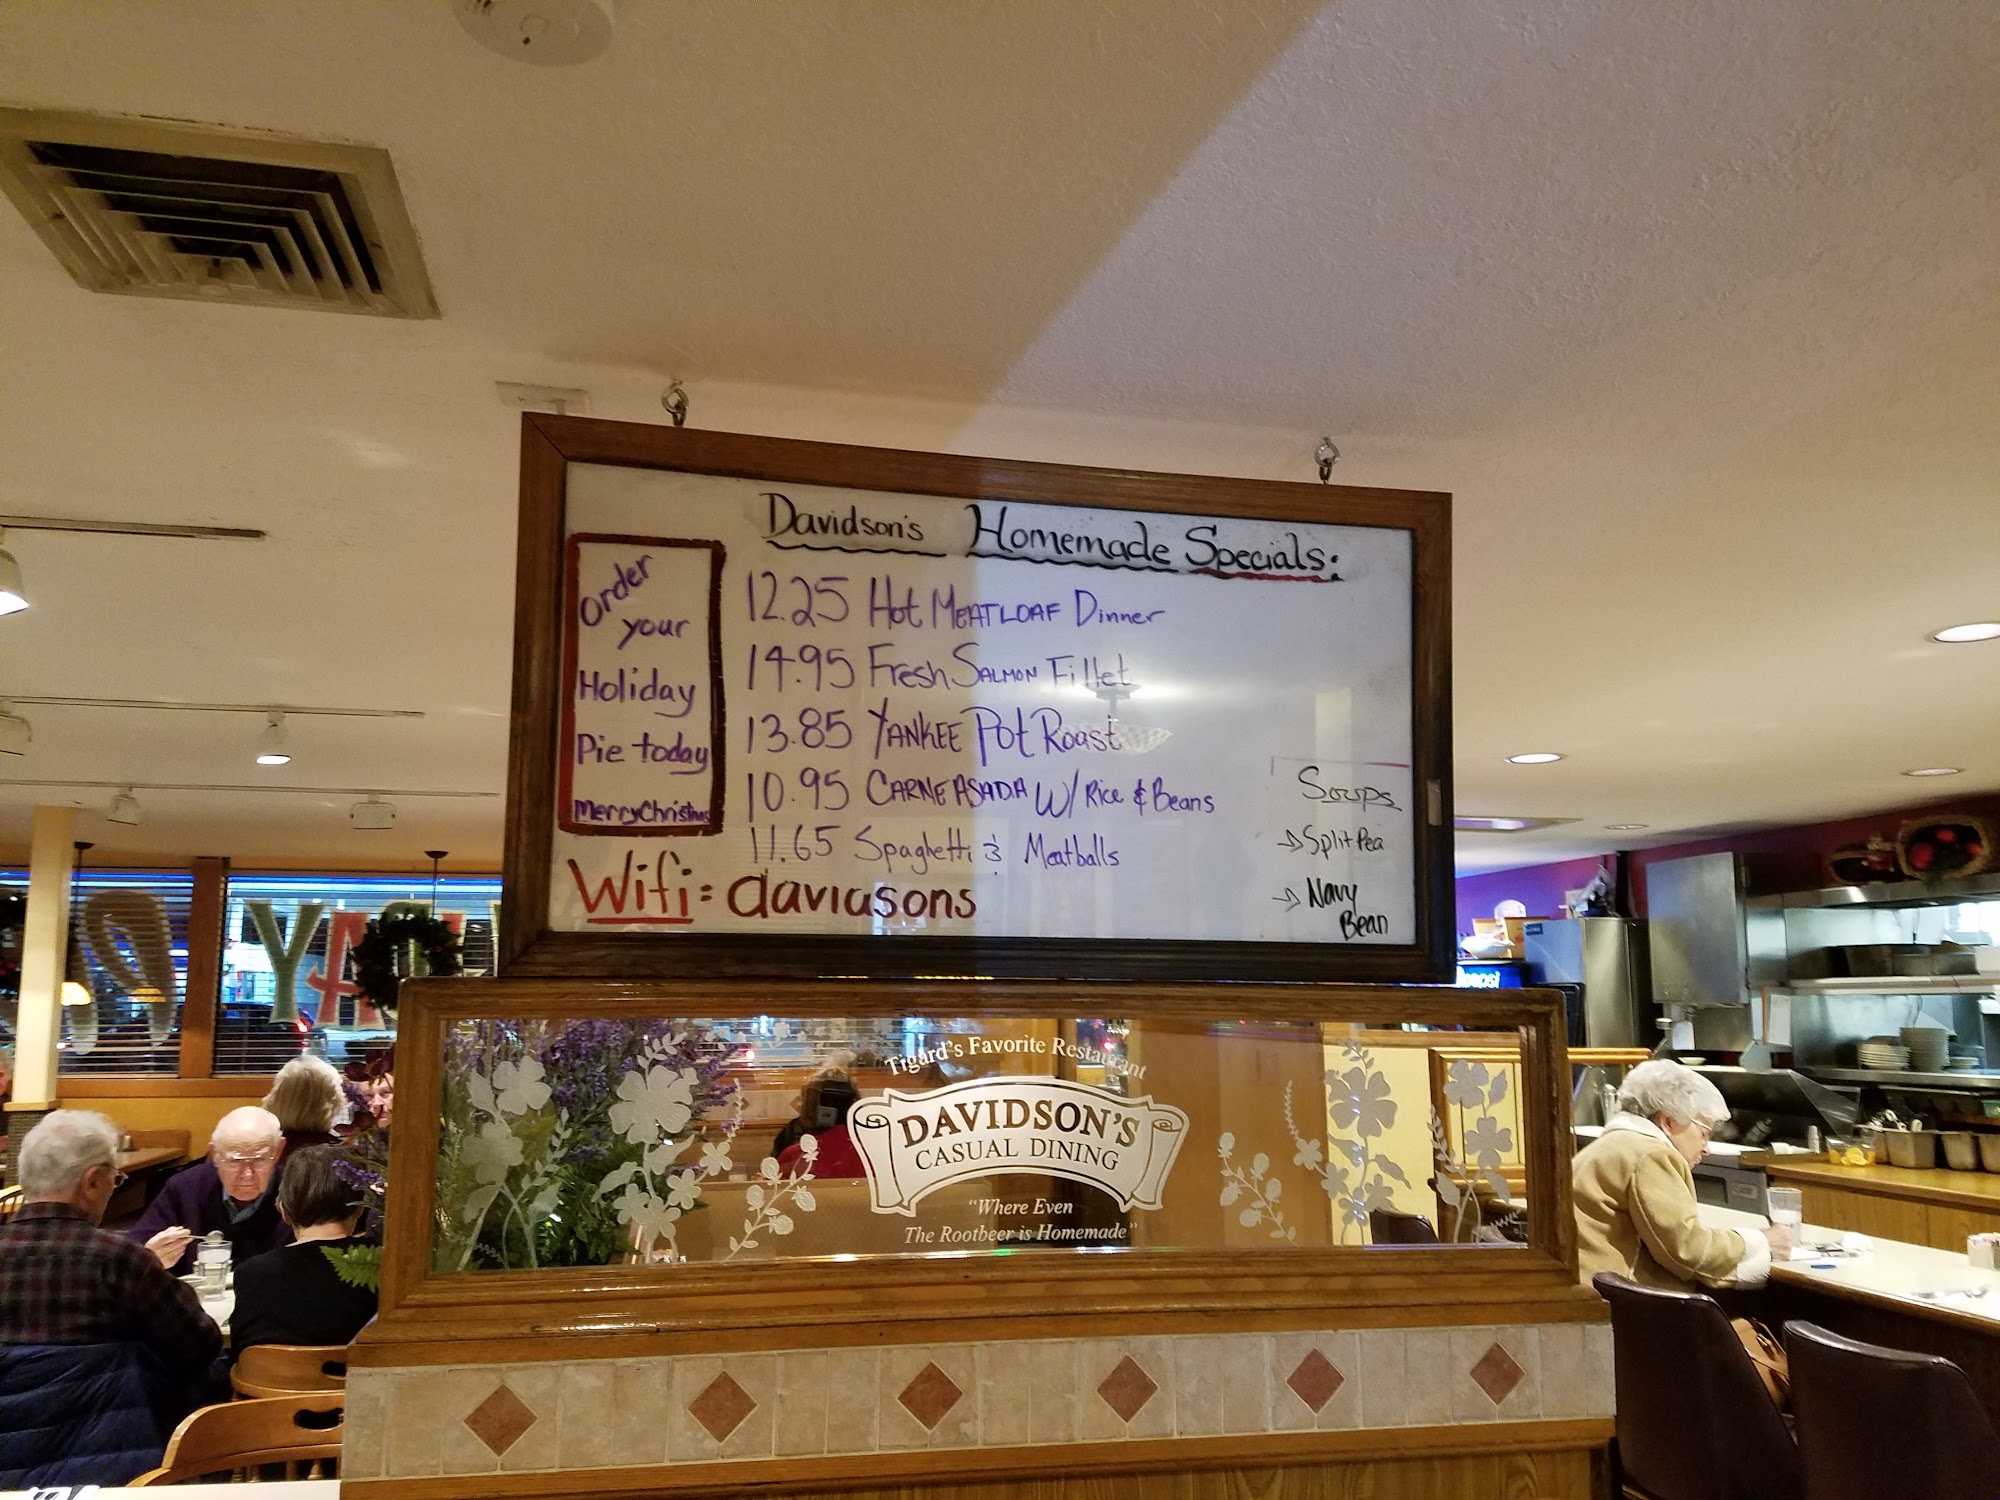 Davidson's Homemade Specials:
Order
your
Holiday
Pie today
Merry Christmas
12.25 Hot MEATLOAF Dinner
14.95 Fresh SALMON Fillet
13.85 YANKEE Pot Roast
10.95 CARNE ASADA W/ Rice & Beans
11.65 Spaghetti & Meatballs
Wifi: davidsons
Soups
→ Split Pea
→ Navy
Bean
Tigard's Favorite Restaurant
DAVIDSON'S
CASUAL DINING
"Where Even
The Rootbeer is Homemade"
pepsi